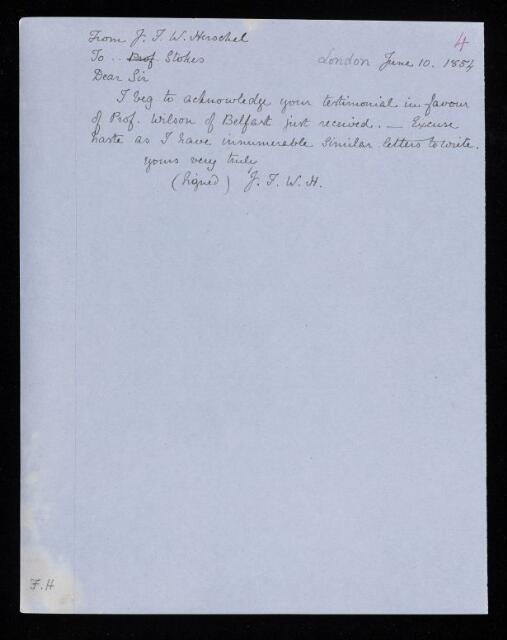 4
From J. F. W. Herschel
To .. Prof Stokes London June 10. 1854
Dear Sir
I beg to acknowledge your testimonial in favour
of Prof. Wilson of Belfast just received. — Excuse
haste as I have innumerable similar letters to write.
yours very truly
(Signed) J. F. W. H.
F. H